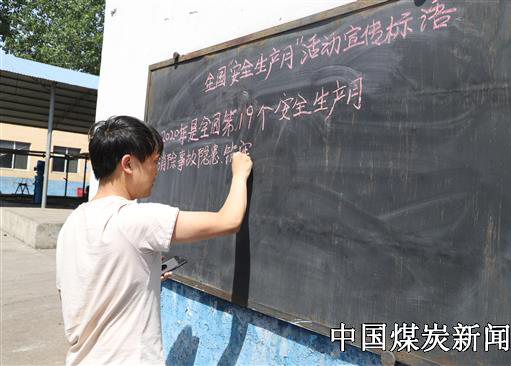 全国“安全生产月”活动宣传标语
2020年是全国第19个安全生产月
消除事故隐患、筑牢
中国煤炭新闻网